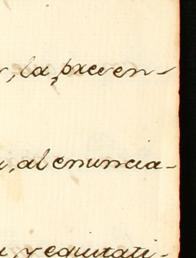 , la preven-
, al enuncia-
, y equitati-